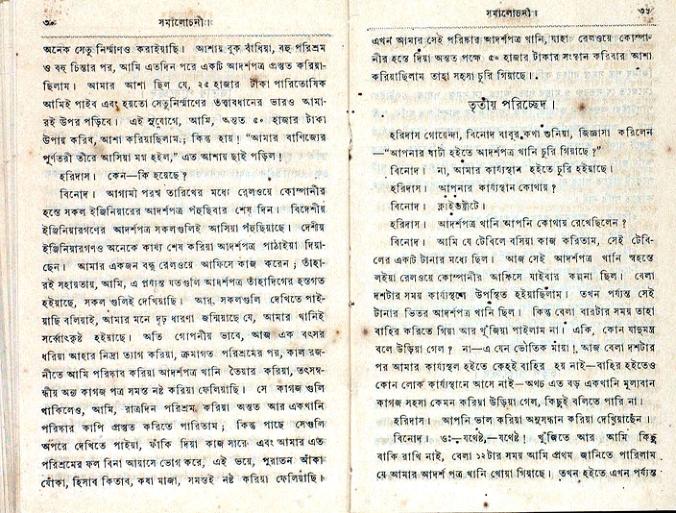 ৩০
সমালোচনী।
অনেক সেতু নির্ম্মাণও করাইয়াছি। আশায় বুক বাঁধিয়া, বহু পরিশ্রম
ও বহু চিন্তার পর, আমি এতদিন পরে একটী আদর্শপত্র প্রস্তুত করিয়া-
ছিলাম। আমার আশা ছিল যে, ২৫ হাজার টাকা পারিতোষিক
আমিই পাইব এবং হয়তো সেতুনির্ম্মাণের তত্ত্বাবধানের ভারও আমা-
রই উপর পড়িবে। এই সুযোগে, আমি, অন্তত ৫০ হাজার টাকা
উপায় করিব, আশা করিয়াছিলাম; কিন্তু হায়! “আমার বাণিজ্যের
পূর্ণতরী তীরে আসিয়া মগ্ন হইল,” এত আশায় ছাই পড়িল!
হরিদাস। কেন—কি হয়েছে?
বিনোদ। আগামী পরশ্ব তারিখের মধ্যে রেলওয়ে কোম্পানীর
হস্তে সকল ইঞ্জিনিয়ারের আদর্শপত্র পঁহুছিবার শেষ দিন। বিদেশীয়
ইঞ্জিনিয়ারগণের আদর্শপত্র সকলগুলিই আসিয়া পঁহুছিয়াছে। দেশীয়
ইঞ্জিনিয়ারগণও অনেকে কার্য্য শেষ করিয়া আদর্শপত্র পাঠাইয়া দিয়া-
ছেন। আমার একজন বন্ধু রেলওয়ে আফিসে কাজ করেন; তাঁহা-
রই সহায়তায়, আমি, এ প্রর্য্যন্ত যতগুলি আদর্শপত্র তাঁহাদিগের হস্তগত
হইয়াছে, সকল গুলিই দেখিয়াছি। আর, সকলগুলি দেখিতে পাই-
য়াছি বলিয়াই, আমার মনে দৃঢ় ধারণা জন্মিয়াছে যে, আমার খানিই
সর্ব্বোৎকৃষ্ট হইয়াছে। অতি গোপনীয় ভাবে, আজ এক বৎসর
ধরিয়া আহার নিদ্রা ত্যাগ করিয়া, ক্রমাগত পরিশ্রমের পর, কাল রজ-
নীতে আমি পরিষ্কার করিয়া আদর্শপত্র খানি তৈয়ার করিয়া, তৎসম্ব-
ন্ধীয় অন্য কাগজ পত্র সমস্ত নষ্ট করিয়া ফেলিয়াছি। সে কাগজ গুলি
থাকিলেও, আমি, রাত্রদিন পরিশ্রম করিয়া অন্তত আর একখানি
পরিষ্কার কাপি প্রস্তুত করিতে পারিতাম; কিন্তু পাছে সেগুলি
অপরে দেখিতে পাইয়া, ফাঁকি দিয়া কাজ সারে এবং আমার এত
পরিশ্রমের ফল বিনা আয়াসে ভোগ করে, এই ভয়ে, পুরাতন আঁকা
যোঁকা, হিসাব কিতাব, কষা মাজা, সমস্তই নষ্ট করিয়া ফেলিয়াছি।
সমালোচনী।
৩১
এখন আমার সেই পরিষ্কার আদর্শপত্র খানি, যাহা রেলওয়ে কোম্পা-
নীর হস্তে দিয়া অন্তত পক্ষে ৫০ হাজার টাকার সংস্থান করিবার আশা
করিয়াছিলাম তাহা সহসা চুরি গিয়াছে।
তৃতীয় পরিচ্ছেদ।
হরিদাস গোয়েন্দা, বিনোদ বাবুর কথা শুনিয়া, জিজ্ঞাসা করিলেন
—“আপনার বাটী হইতে আদর্শপত্র খানি চুরি গিয়াছে?”
বিনোদ। না, আমার কার্য্যস্থান হইতে চুরি হইয়াছে।
হরিদাস। আপনার কার্য্যস্থান কোথায়?
বিনোদ। ক্লাইভষ্ট্রীটে।
হরিদাস। আদর্শপত্র খানি আপনি কোথায় রেখেছিলেন?
বিনোদ। আমি যে টেবিলে বসিয়া কাজ করিতাম, সেই টেবি-
লের একটি টানার মধ্যে ছিল। আজ সেই আদর্শপত্র খানি স্বহস্তে
লইয়া রেলওয়ে কোম্পানীর আফিসে যাইবার কল্পনা ছিল। বেলা
দশটার সময় কার্য্যস্থলে উপস্থিত হইয়াছিলাম। তখন পর্য্যন্ত সেই
টানার ভিতর আদর্শপত্র খানি ছিল। কিন্তু বেলা বারটার সময় তাহা
বাহির করিতে গিয়া আর খুঁজিয়া পাইলাম না। একি, কোন যাদুমন্ত্র
বলে উড়িয়া গেল? না—এ যেন ভৌতিক মায়া। আজ বেলা দশটার
পর আমার কার্য্যস্থল হইতে কেহই বাহির হয় নাই—বাহির হইতেও
কোন লোক কার্য্যস্থানে আসে নাই—অথচ এত বড় একখানি মূল্যবান
কাগজ সহসা কেমন করিয়া উড়িয়া গেল, কিছুই বলিতে পারি না।
হরিদাস। আপনি ভাল করিয়া অনুসন্ধান করিয়া দেখিয়াছেন।
বিনোদ। ওঃ—যথেষ্ট,—যথেষ্ট! খুঁজিতে আর আমি কিছু
বাকি রাখি নাই, বেলা ১২টার সময় আমি প্রথম জানিতে পারিলাম
যে আমার আদর্শ পত্র খানি খোয়া গিয়াছে। তখন হইতে এখন পর্য্যন্ত